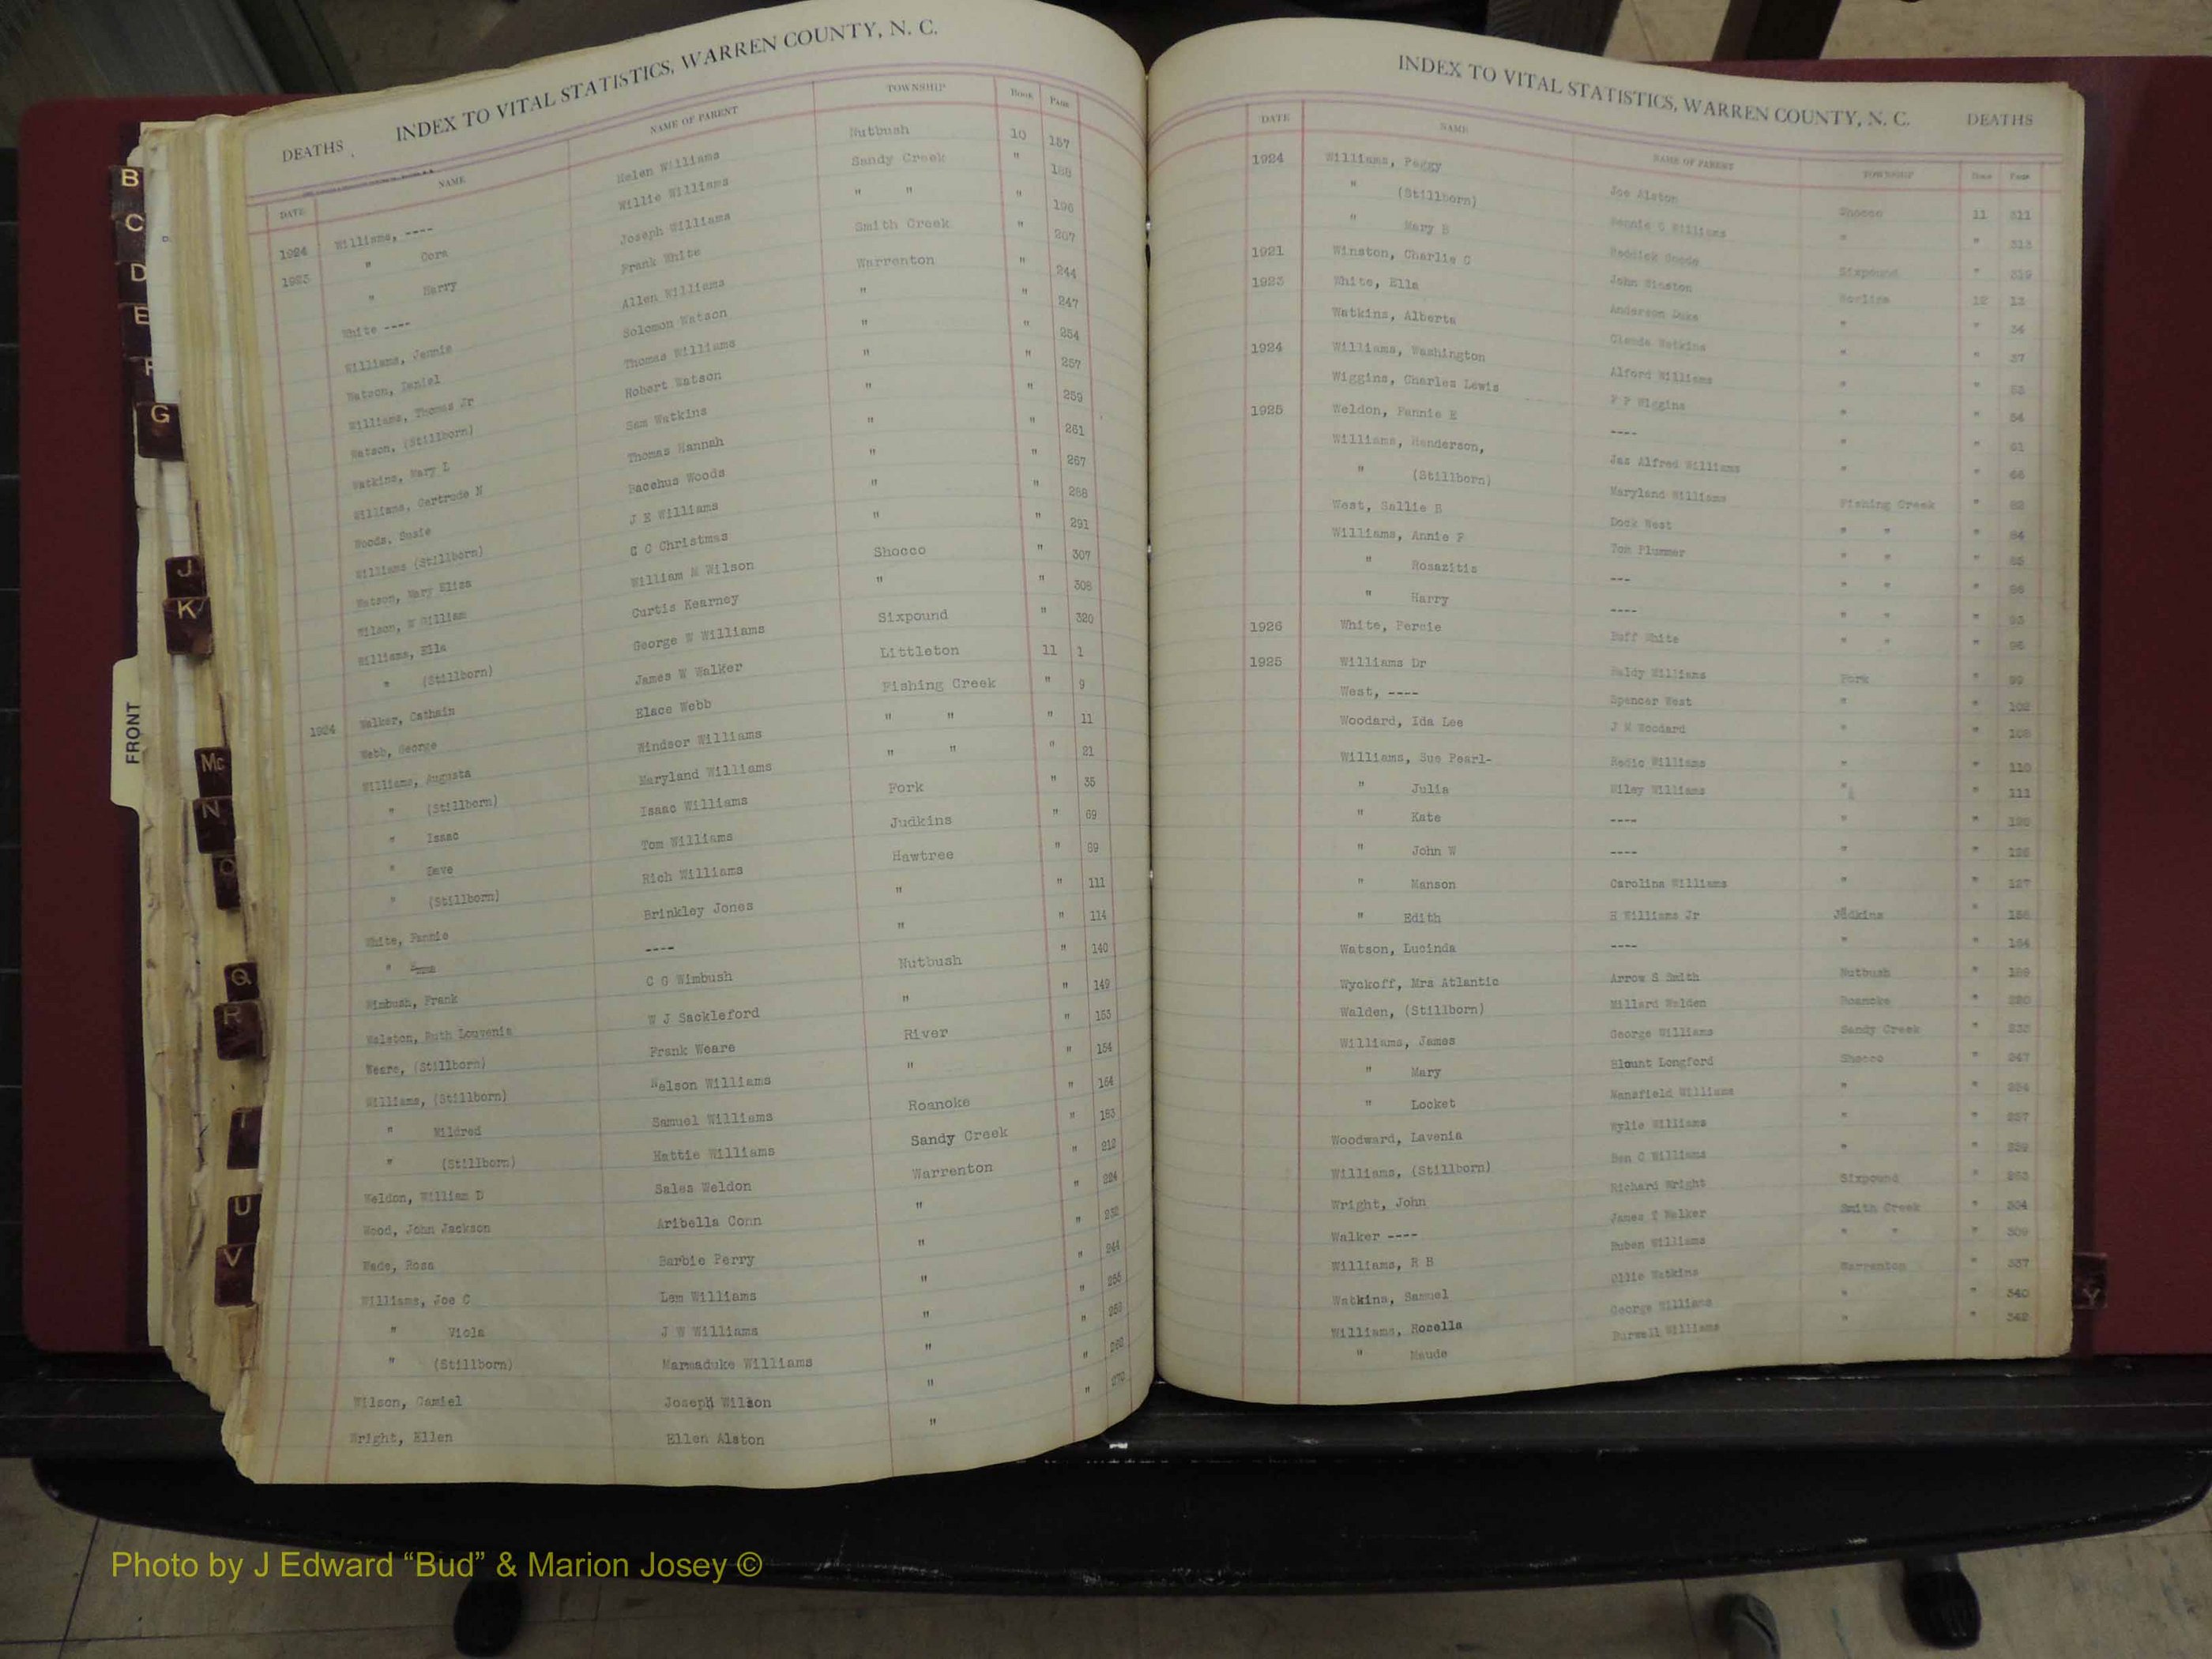 INDEX TO VITAL STATISTICS, WARREN COUNTY, N. C.
DEATHS
DATE NAME NAME OF PARENT TOWNSHIP Book Page
1924 Williams, ---- Helen Williams Nutbush 10 157
1923 " Cora Willie Williams Sandy Creek " 188
" Harry Joseph Williams " " " 196
White ---- Frank White Smith Creek " 207
Williams, Jennie Allen Williams Warrenton " 244
Watson, Daniel Solomon Watson " " 247
Williams, Thomas Jr Thomas Williams " " 254
Watson, (Stillborn) Robert Watson " " 257
Watkins, Mary L Sam Watkins " " 259
Williams, Gertrude N Thomas Hannah " " 261
Woods, Susie Bacchus Woods " " 267
Williams (Stillborn) J E Williams " " 288
Watson, Mary Eliza G C Christmas " " 291
Wilson, W William William M Wilson Shocco " 307
Williams, Ella Curtis Kearney " " 308
" (Stillborn) George W Williams Sixpound " 320
1924 Walker, Cathain James W Walker Littleton 11 1
Webb, George Elace Webb Fishing Creek " 9
Williams, Augusta Windsor Williams " " " 11
" (Stillborn) Maryland Williams " " " 21
" Isaac Isaac Williams Fork " 35
" Dave Tom Williams Judkins " 69
" (Stillborn) Rich Williams Hawtree " 89
White, Fannie Brinkley Jones " " 111
" ---- " " 114
Wimbush, Frank C G Wimbush Nutbush " 140
Walston, Ruth Louvenia W J Sackleford " " 149
Weare, (Stillborn) Frank Weare River " 153
Williams, (Stillborn) Nelson Williams " " 154
" Mildred Samuel Williams Roanoke " 164
" (Stillborn) Hattie Williams Sandy Creek " 183
Weldon, William D Sales Weldon Warrenton " 212
Wood, John Jackson Aribella Conn " " 224
Wade, Rosa Barbie Perry " " 232
Williams, Joe C Lem Williams " " 244
" Viola J W Williams " " 255
" (Stillborn) Marmaduke Williams " " 259
Wilson, Camiel Joseph Wilson " "
Wright, Ellen Ellen Alston " " 270
INDEX TO VITAL STATISTICS, WARREN COUNTY, N. C. DEATHS
DATE NAME NAME OF PARENT TOWNSHIP Book Page
1924 Williams, Peggy Joe Alston Shocco 11 311
" (Stillborn) Bennie G Williams " " 313
" Mary B Reddick Goode Sixpound " 319
1921 Winston, Charlie C John Winston Norlina 12 12
1923 White, Ella Anderson Duke " " 34
Watkins, Alberta Claude Watkins " " 37
1924 Williams, Washington Alford Williams " " 53
Wiggins, Charles Lewis P P Wiggins " " 54
1925 Weldon, Fannie E ---- " " 61
Williams, Henderson, Jas Alfred Williams " " 66
" (Stillborn) Maryland Williams Fishing Creek " 82
West, Sallie B Dock West " " " 84
Williams, Annie F Tom Plummer " " " 85
" Rosazitis --- " " " 86
" Harry ---- " " " 93
1926 White, Percie Buff White " " " 95
1925 Williams Dr Baldy Williams Fork " 99
West, ---- Spencer West " " 102
Woodard, Ida Lee J M Woodard " " 108
Williams, Sue Pearl- Redic Williams " " 110
" Julia Wiley Williams " " 111
" Kate ---- " " 120
" John W ---- " " 126
" Manson Carolina Williams " " 127
" Edith H Williams Jr Judkins " 156
Watson, Lucinda ---- " " 164
Wyckoff, Mrs Atlantic Arrow S Smith Nutbush " 189
Walden, (Stillborn) Millard Walden Roanoke " 220
Williams, James George Williams Sandy Creek " 232
" Mary Blount Longford Shocco " 247
" Locket Mansfield Williams " " 254
Woodward, Lavenia Wylie Williams " " 257
Williams, (Stillborn) Ben C Williams " " 259
Wright, John Richard Wright Sixpound " 263
Walker ---- James T Walker Smith Creek " 304
Williams, R B Ruben Williams " " " 309
Watkins, Samuel Ollie Watkins Warrenton " 337
Williams, Rosella George Williams " " 340
" Maude Burwell Williams " " 342
B
C
D
E
F
G
J
K
Mc
N
O
Q
R
T
U
V
Y
FRONT
Photo by J Edward “Bud” & Marion Josey ©